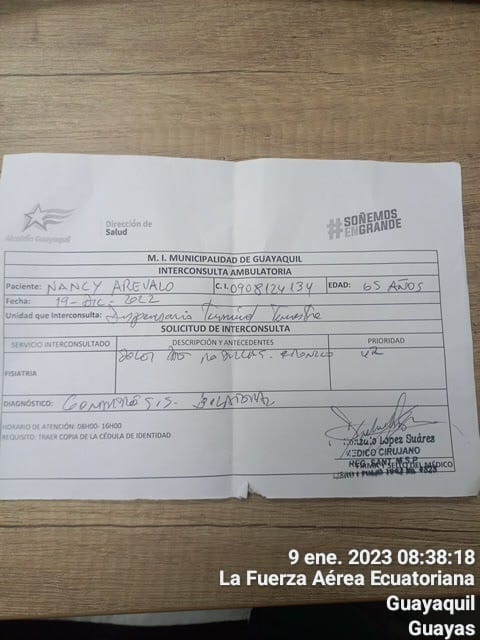 Alcaldía Guayaquil
Dirección de
Salud
#SOÑEMOS
ENGRANDE
M. I. MUNICIPALIDAD DE GUAYAQUIL
INTERCONSULTA AMBULATORIA
Paciente: NANCY AREVALO C.I. 0908124134 EDAD: 65 AÑOS
Fecha: 19-DIC-2022
Unidad que Interconsulta: Dispensario Terminal Terrestre
SOLICITUD DE INTERCONSULTA
SERVICIO INTERCONSULTADO DESCRIPCIÓN Y ANTECEDENTES PRIORIDAD
FISIATRIA DOLOR DE RODILLAS
DIAGNÓSTICO: BILATERAL
HORARIO DE ATENCIÓN: 08H00- 16H00
REQUISITO: TRAER COPIA DE LA CÉDULA DE IDENTIDAD
López Suárez
MEDICO CIRUJANO
REG. SANT. M.S.P.
FIRMA Y SELLO DEL MÉDICO
9 ene. 2023 08:38:18
La Fuerza Aérea Ecuatoriana
Guayaquil
Guayas